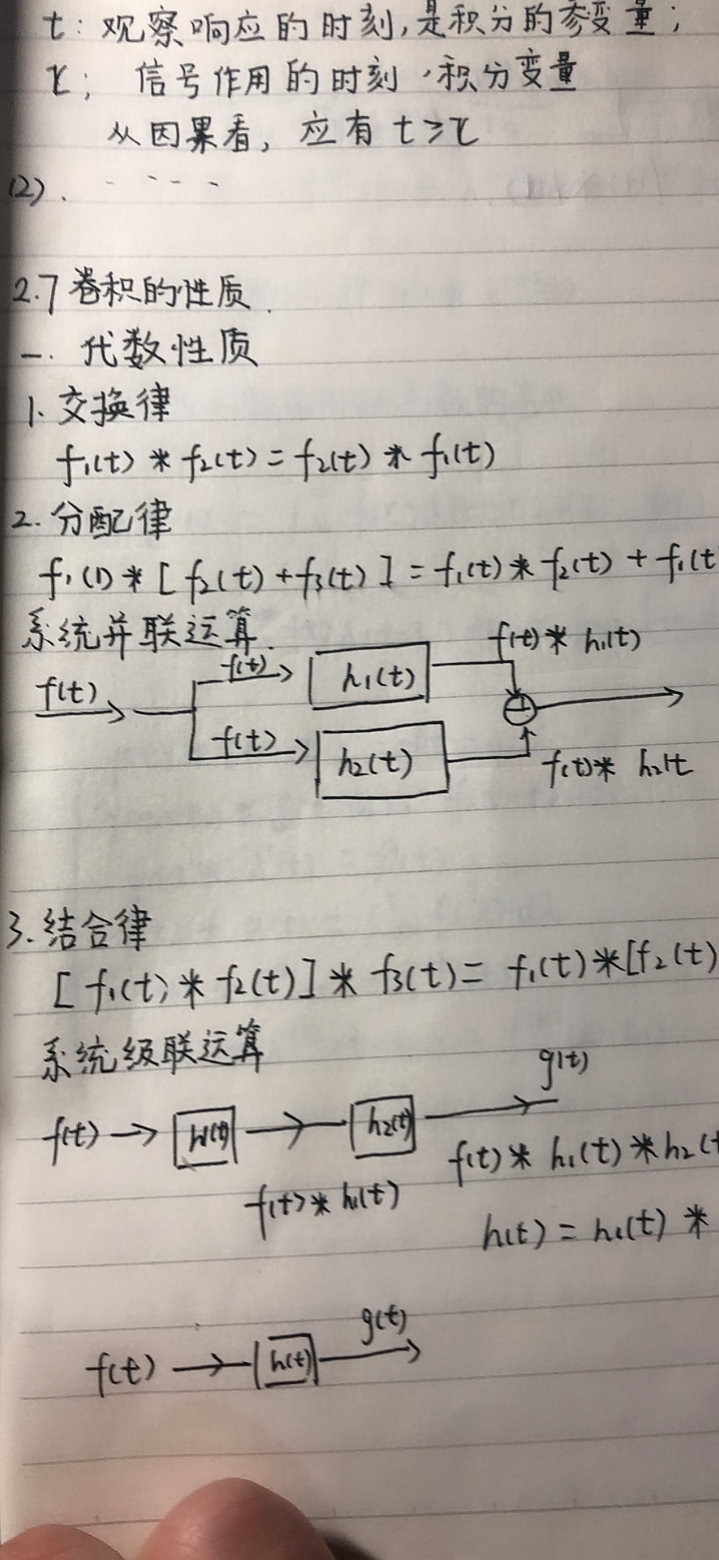 t: 观察响应的时刻,是积分的参变量;
τ; 信号作用的时刻,积分变量
从因果看, 应有 t≥τ
(2). - - - -
2.7 卷积的性质.
一. 代数性质
1. 交换律
f₁(t) * f₂(t) = f₂(t) * f₁(t)
2. 分配律
f₁(t) * [ f₂(t) + f₃(t) ] = f₁(t) * f₂(t) + f₁(t
系统并联运算.
f(t) * h₁(t)
f(t) f(t) h₁(t)
f(t) h₂(t)
f(t)* h₂(t
3. 结合律
[ f₁(t) * f₂(t) ] * f₃(t) = f₁(t) * [f₂(t)
系统级联运算
g(t)
f(t) → h₁(t) → h₂(t) →
f(t) * h₁(t) f(t) * h₁(t) * h₂(t
h(t) = h₁(t) *
g(t)
f(t) → h(t) →